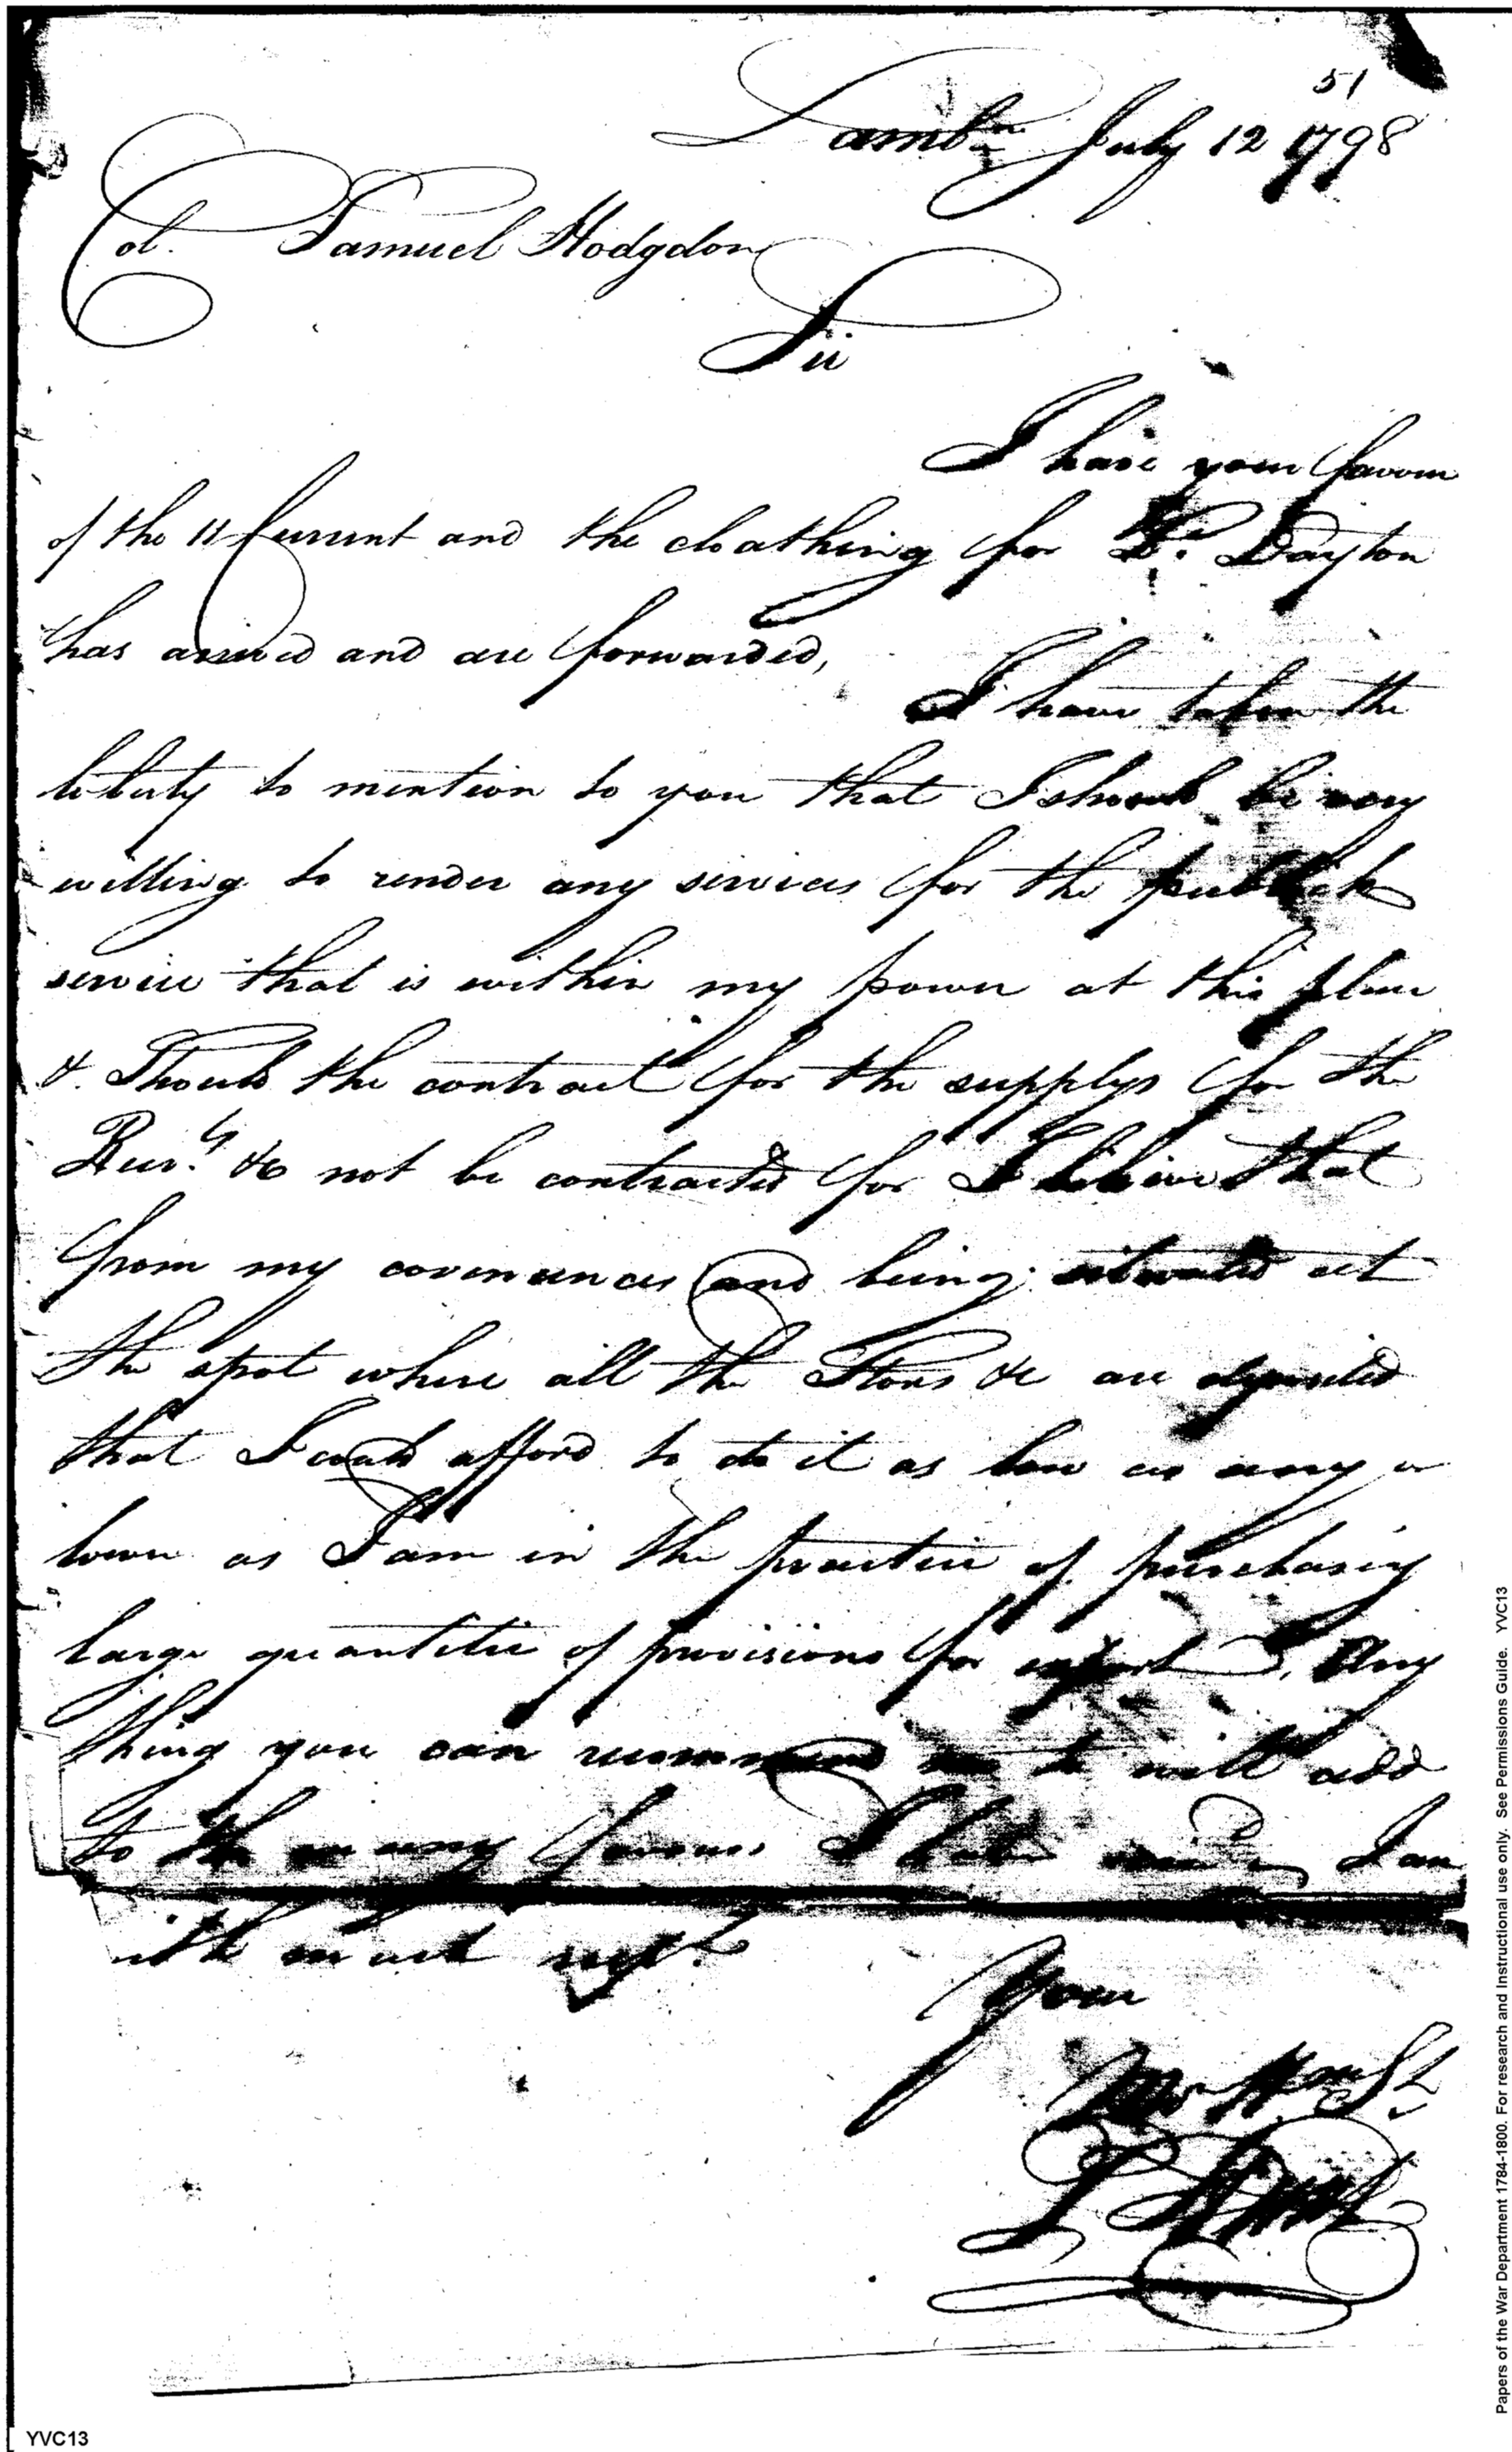 51
Lambn July 12 1798
Col. Samuel Hodgdon
Sir
I have your favour
of the 11 Current and the cloathing for Lt. Dayton
has arrived and are forwarded,
I have taken the
liberty to mention to you that I should be very
willing to render any services for the publick
service that is within my power at this place
& Should the contract for the supplys for the
&c not be contracted for I believe that
from my and being situated at
the spot where all the Stores &c are deposited
that I could afford to do it as low as any or
lower as I am in the practice of purchasing
large quantitie of provisions for export. Any
thing you can recommend me to will add
to the many favours I have I am
with much respt.
Your
Mo Hm St
YVC13
Papers of the War Department 1784-1800. For research and Instructional use only. See Permissions Guide. YVC13